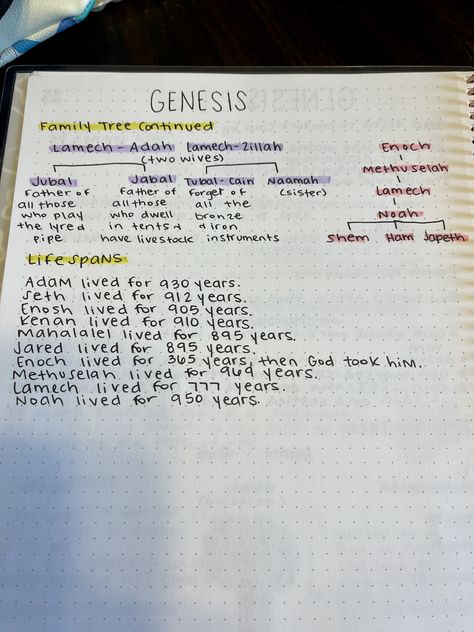 GENESIS
Family Tree Continued
Lamech - Adah Lamech - Zillah
(two wives)
Jubal Jabal Tubal-Cain Naamah
Father of Father of Forger of (sister)
all those all those all the
who play who dwell bronze
the lyre & in tents & & iron
pipe have livestock instruments
Enoch
Methuselah
Lamech
Noah
Shem Ham Japeth
Lifespans
Adam lived for 930 years.
Seth lived for 912 years.
Enosh lived for 905 years.
Kenan lived for 910 years.
Mahalalel lived for 895 years.
Jared lived for 895 years.
Enoch lived for 365 years, then God took him.
Methuselah lived for 969 years.
Lamech lived for 777 years.
Noah lived for 950 years.